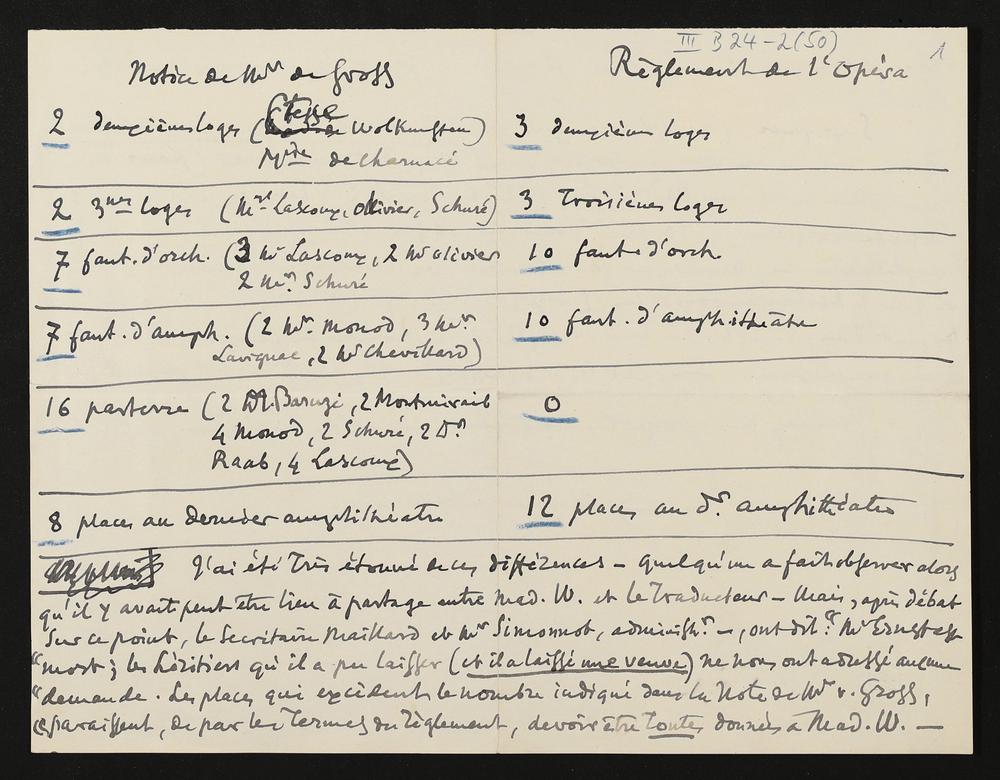 III B 24-2(50)
1
Notice de Mr de Gross
Règlement de l'Opéra
2 deuxièmes loges (Ctesse Wolkenstein)
Mise de Charnacé
3 deuxièmes loges
2 3mes loges (Mrs Lascoux, Olivier, Schuré)
3 Troisièmes loges
7 faut. d'orch. (3 Mr Lascoux, 2 Mr Olivier
2 Mr Schuré
10 faut. d'orch.
7 faut. d'amph. (2 Mr Monod, 3 Mr
Lavignac, 2 Mr Chevillard)
10 faut. d'amphithéatre
16 parterre (2 Dr. Baruzi, 2 Montmirail
4 Monod, 2 Schuré, 2 Dr
Raab, 4 Lascoux)
0
8 places au dernier amphithéatre
12 places au dr amphithéatre
J'ai été très étonné de ces différences – Quelqu'un a fait observer alors
qu'il y avait peut être lieu à partage entre Mad. W. et le Traducteur – Mais, après débat
sur ce point, le Secrétaire Maillard et Mr Simonnot, administr. –, ont dit: "Mr Ernst est
"mort; les héritiers qu'il a pu laisser (et il a laissé une veuve) ne nous ont adressé aucune
"demande. Les places qui excèdent le nombre indiqué dans la Note de Mr v. Gross,
"paraissent, de par les termes du règlement, devoir être toutes données à Mad. W. —